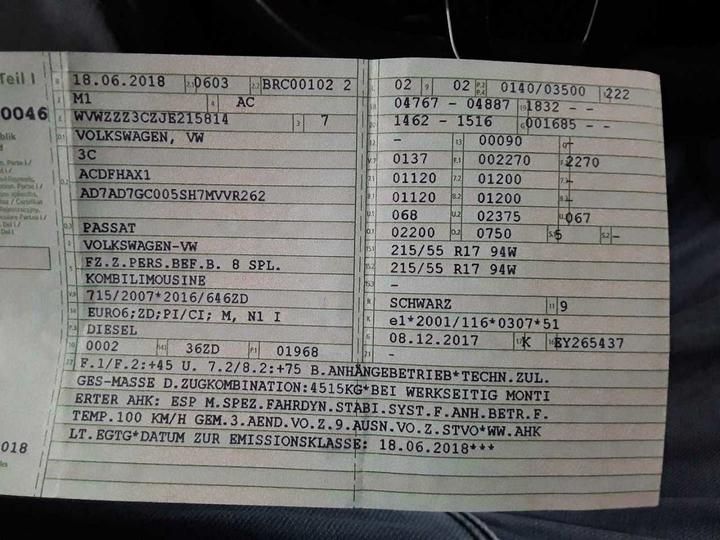 Teil I
B 18.06.2018 2.1 0603 2.2 BRC00102 2
J M1 4 AC
E WVWZZZ3CZJE215814 3 7
D.1 VOLKSWAGEN, VW
3C
D.2 ACDFHAX1
AD7AD7GC005SH7MVVR262
D.3 PASSAT
2 VOLKSWAGEN-VW
5 FZ.Z.PERS.BEF.B. 8 SPL.
KOMBILIMOUSINE
V.9 715/2007*2016/646ZD
14 EURO6;ZD;PI/CI; M, N1 I
P.3 DIESEL
10 0002 14.1 36ZD P.1 01968
L 02 9 02 P.2 P.4 0140/03500 T 222
18 04767 - 04887 19 1832 - -
20 1462 - 1516 G 001685 - -
12 - 13 00090 Q -
V.7 0137 F.1 002270 F.2 2270
7.1 01120 7.2 01200 7.3 -
8.1 01120 8.2 01200 8.3 -
U.1 068 U.2 02375 U.3 067
O.1 02200 O.2 0750 S.1 5 S.2 -
15.1 215/55 R17 94W
15.2 215/55 R17 94W
15.3 -
R SCHWARZ 11 9
K e1*2001/116*0307*51
6 08.12.2017 17 K 16 EY265437
21 -
22 F.1/F.2:+45 U. 7.2/8.2:+75 B.ANHÄNGEBETRIEB*TECHN.ZUL.
GES-MASSE D.ZUGKOMBINATION:4515KG*BEI WERKSEITIG MONTI
ERTER AHK: ESP M.SPEZ.FAHRDYN.STABI.SYST.F.ANH.BETR.F.
TEMP.100 KM/H GEM.3.AEND.VO.Z.9.AUSN.VO.Z.STVO*WW.AHK
LT.EGTG*DATUM ZUR EMISSIONSKLASSE: 18.06.2018***
0046
018